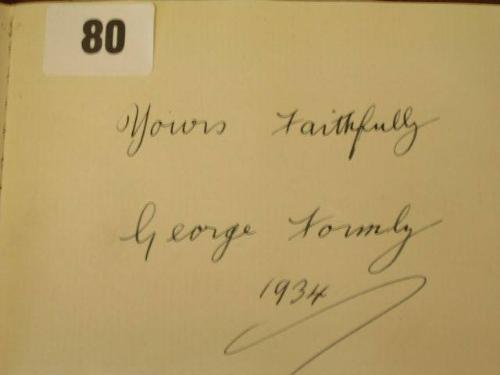 80
Yours Faithfully
George Formby
1934